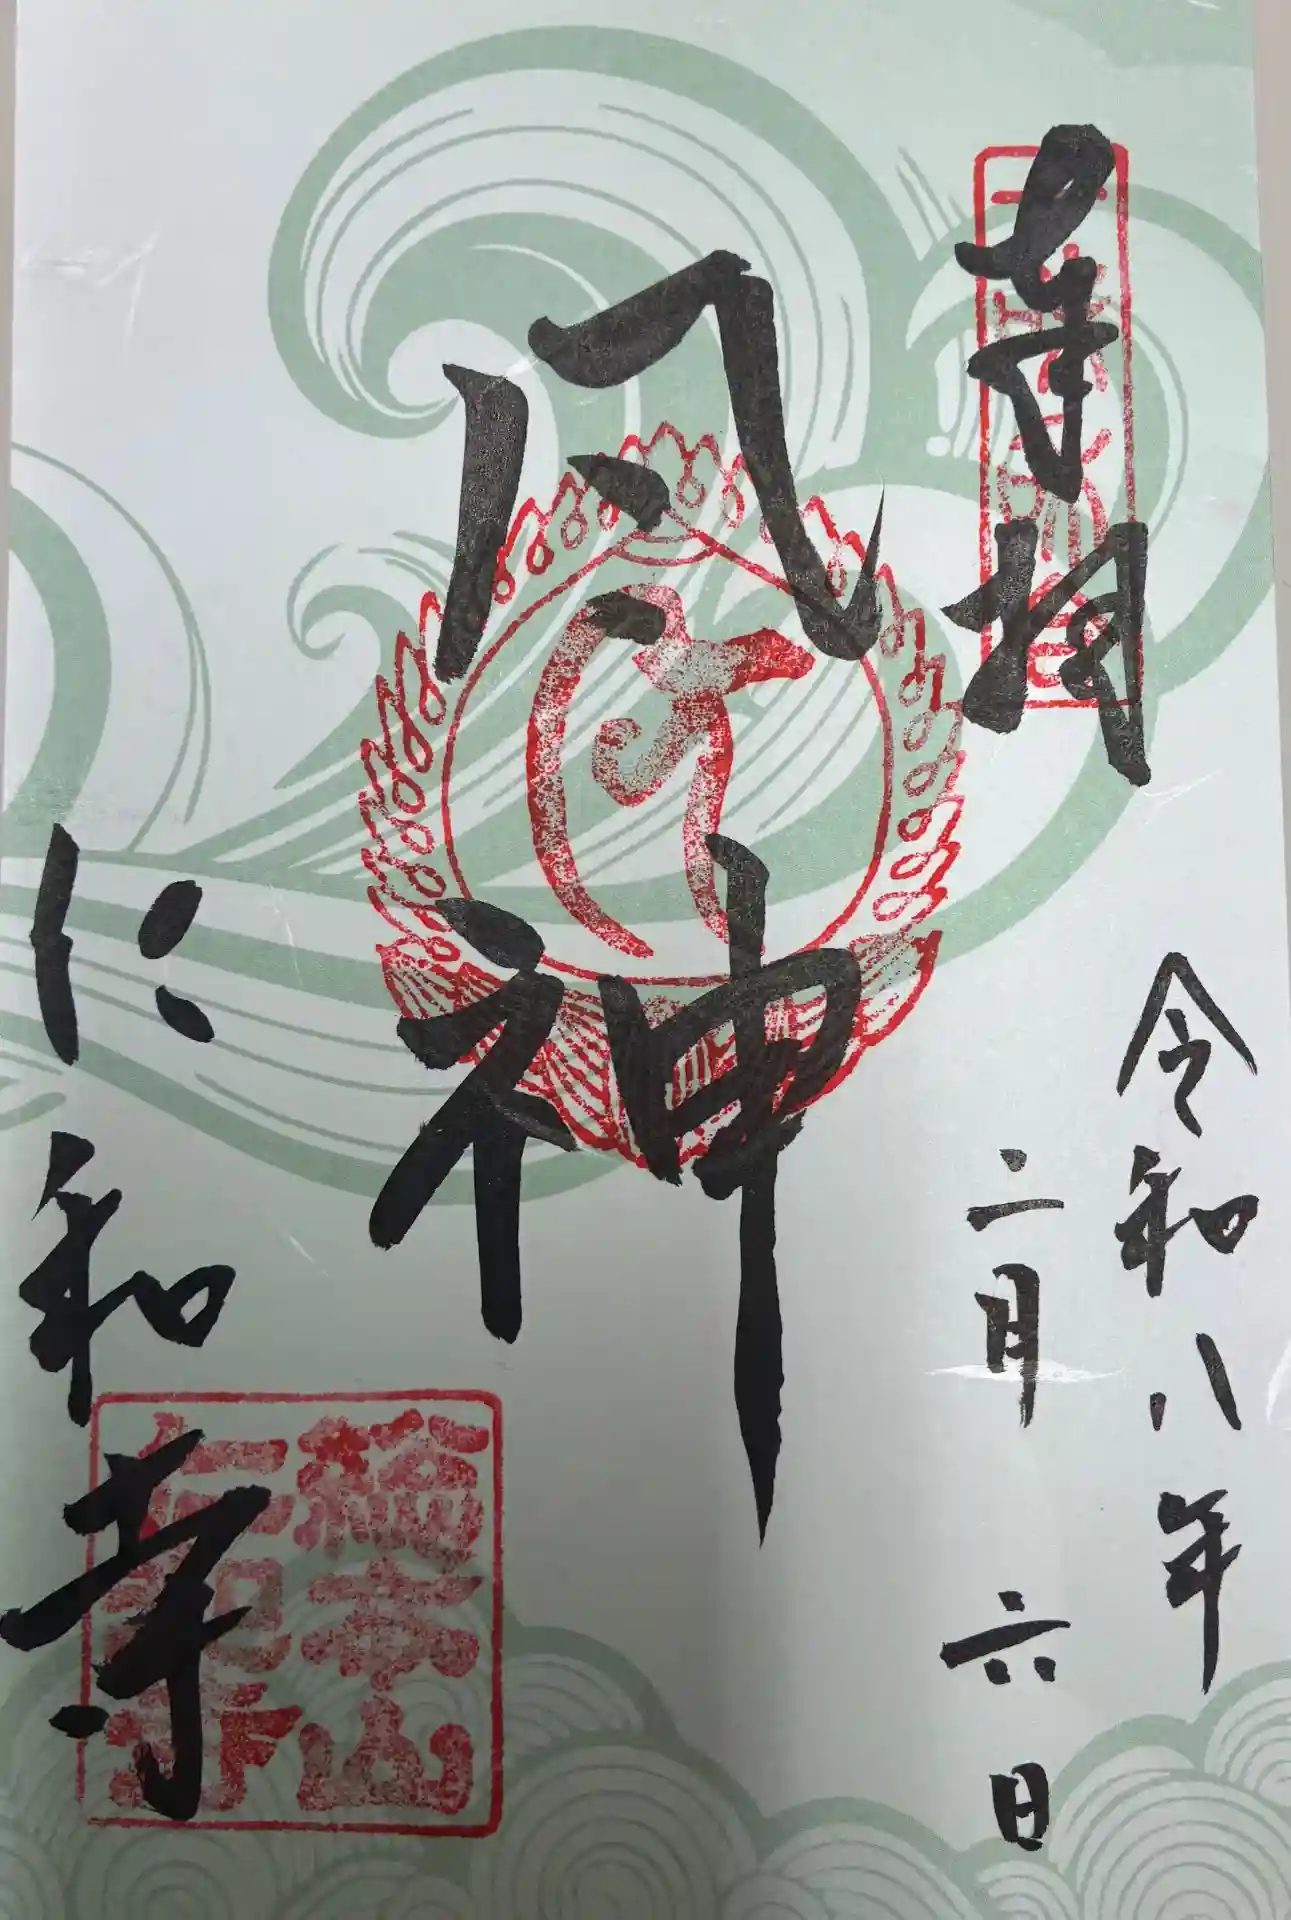 奉拝
令和八年
二月六日
風神
仁和寺
総本山
仁和寺